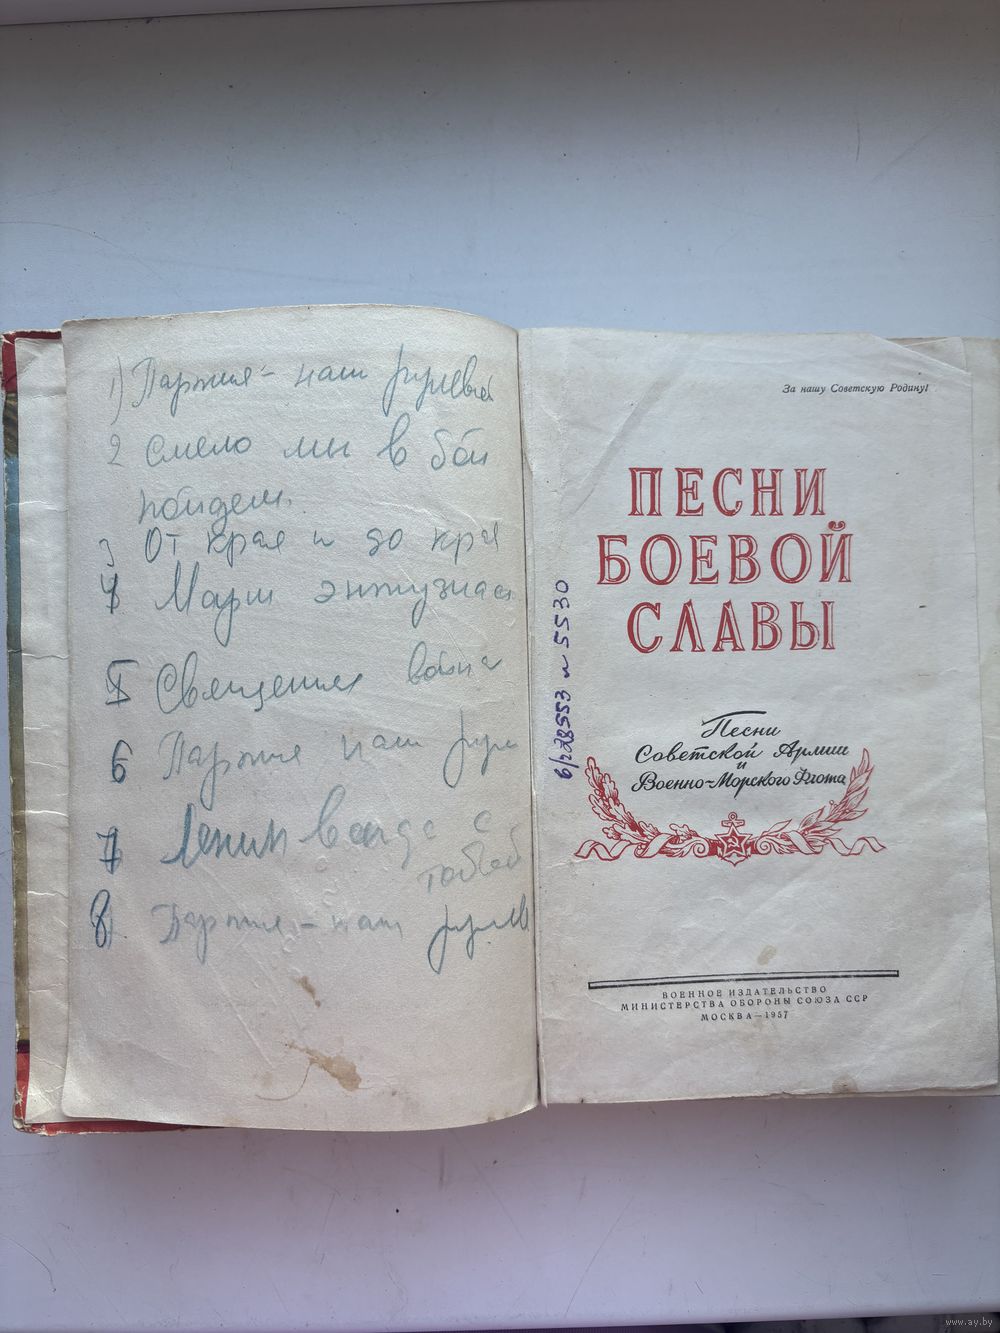 1) Партия - наш рулевой
2 Смело мы в бой
пойдем.
3 От края и до края
4 Марш энтузиас
5 Священная война
6 Партия наш рул
7 Ленин всегда с
тобой
8) Партия - наш рулев
За нашу Советскую Родину!
ПЕСНИ
БОЕВОЙ
СЛАВЫ
б/г 28553 и 5530
Песни
Советской Армии
и
Военно-Морского Флота
ВОЕННОЕ ИЗДАТЕЛЬСТВО
МИНИСТЕРСТВА ОБОРОНЫ СОЮЗА ССР
МОСКВА—1957
www.ay.by